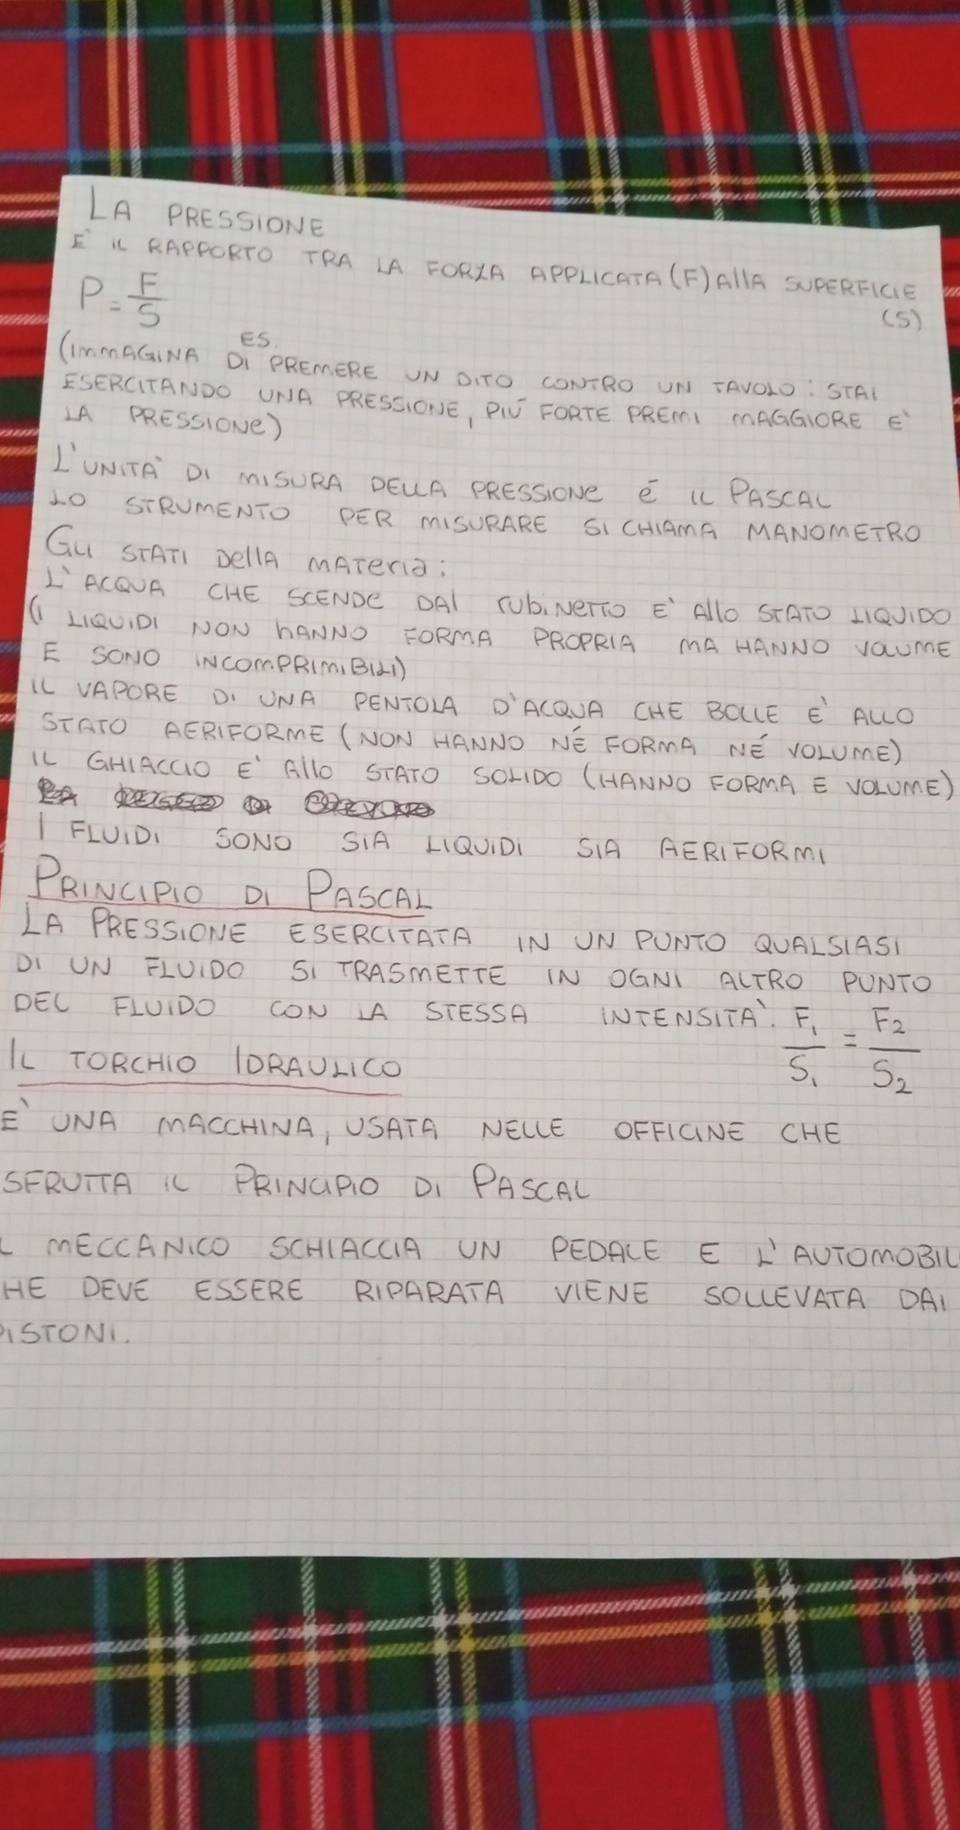 LA PRESSIONE
E' IL RAPPORTO TRA LA FORZA APPLICATA (F) AllA SUPERFICIE
(S)
P = F/S
ES.
(IMMAGINA DI PREMERE UN DITO CONTRO UN TAVOLO: STAI
ESERCITANDO UNA PRESSIONE, PIÙ FORTE PREMI MAGGIORE E'
LA PRESSIONe)
L'UNITA' DI MISURA DELLA PRESSIONe é IL PASCAL
LO STRUMENTO PER MISURARE SI CHIAMA MANOMETRO
GLI STATI DellA MATeria:
L'ACQUA CHE SCENDe DAl rubiNeTTO E' AllO STATO LIQUIDO
(I LIQUIDI NON hANNO FORMA PROPRIA MA HANNO VOLUME
E SONO INCOMPRIMIBILI)
IL VAPORE DI UNA PENTOLA D'ACQUA CHE BOLLE E' ALLO
STATO AERIFORME (NON HANNO NÉ FORMA NÉ VOLUME)
IL GHIACCIO E' AllO STATO SOLIDO (HANNO FORMA E VOLUME)
I FLUIDI SONO SIA LIQUIDI SIA AERIFORMI
PRINCIPIO DI PASCAL
LA PRESSIONE ESERCITATA IN UN PUNTO QUALSIASI
DI UN FLUIDO SI TRASMETTE IN OGNI ALTRO PUNTO
DEL FLUIDO CON LA STESSA INTENSITA'. F₁/S₁ = F₂/S₂
IL TORCHIO IDRAULICO
E' UNA MACCHINA, USATA NELLE OFFICINE CHE
SFRUTTA IL PRINCIPIO DI PASCAL
L MECCANICO SCHIACCIA UN PEDALE E L'AUTOMOBIL
HE DEVE ESSERE RIPARATA VIENE SOLLEVATA DAI
PISTONI.